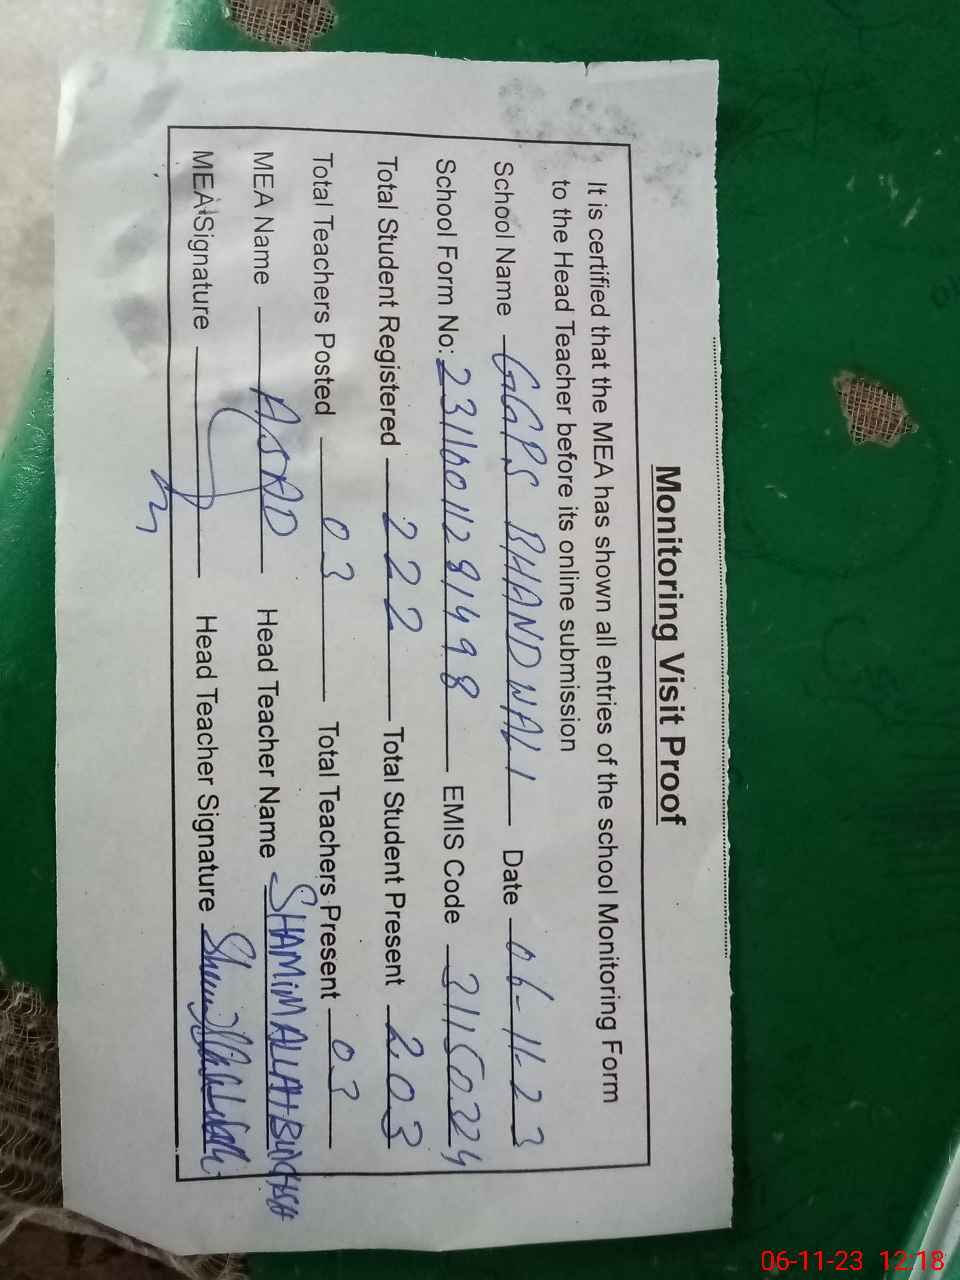 Monitoring Visit Proof
It is certified that the MEA has shown all entries of the school Monitoring Form
to the Head Teacher before its online submission
School Name GGPS BHANDWALI Date 06-11-23
School Form No: 2311601128 1498 EMIS Code 31150224
Total Student Registered 222 Total Student Present 203
Total Teachers Posted 03 Total Teachers Present 03
MEA Name ASAD Head Teacher Name SHAMIM ALLAH BUKHSH
MEA Signature Head Teacher Signature
06-11-23 12:18